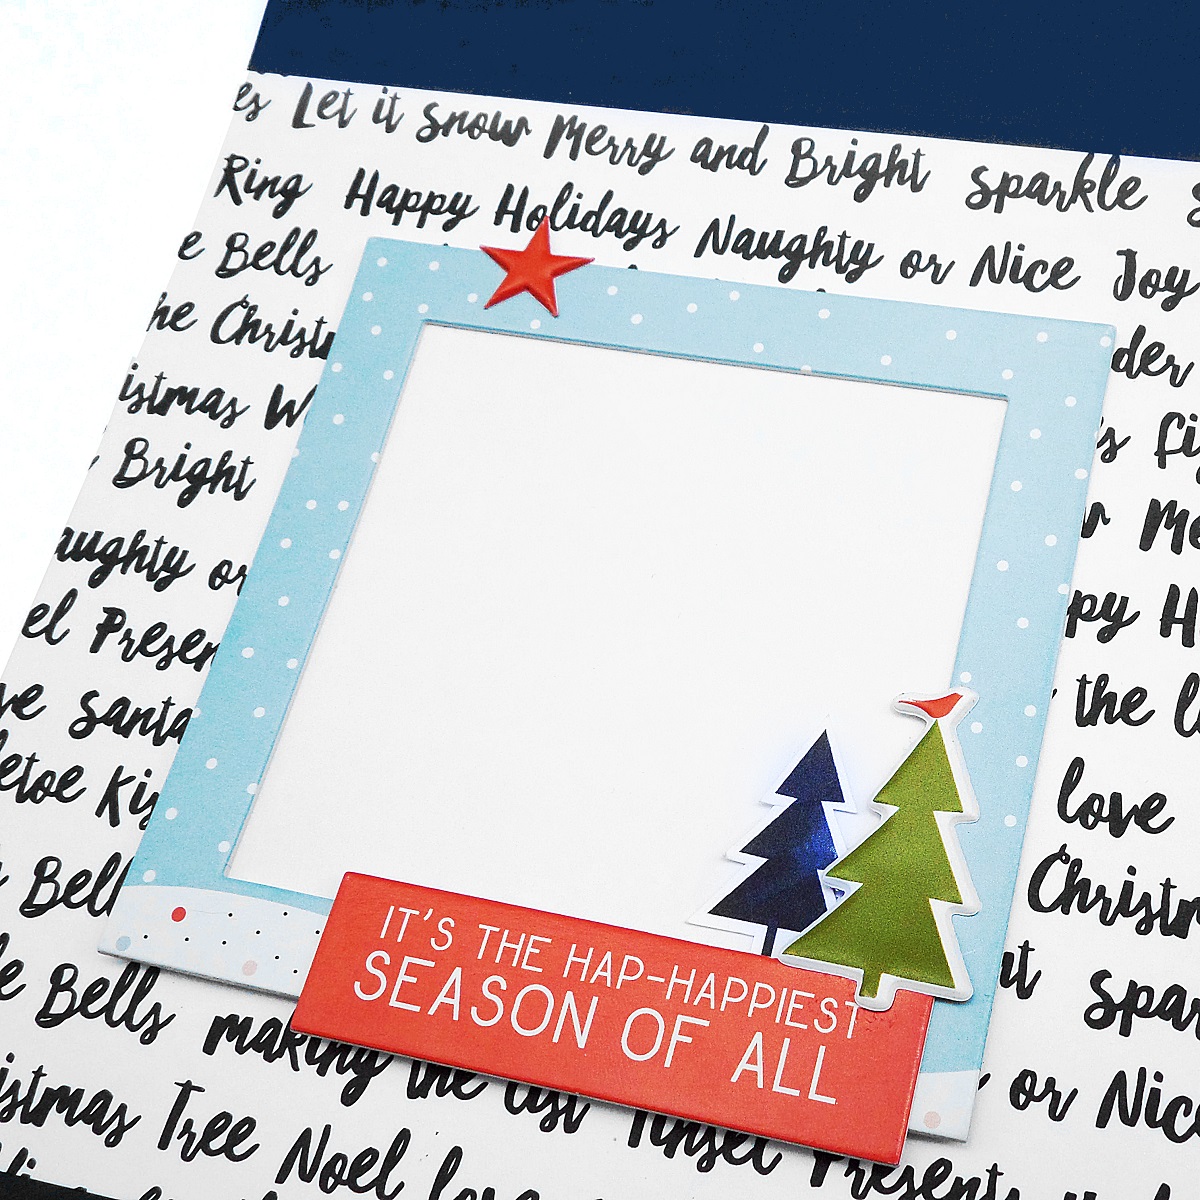 es Let it snow Merry and Bright sparkle
Ring Happy Holidays Naughty or Nice Joy
e Bells
he Christm
der
istmas W
's
Bright
Me
aughty or
ppy H
el Presen
the l
ve santa
love
etoe Kis
Christm
Bell
spar
le Bells making the list
or Nice
istmas Tree Noel love Tinsel Presents
IT'S THE HAP-HAPPIEST
SEASON OF ALL